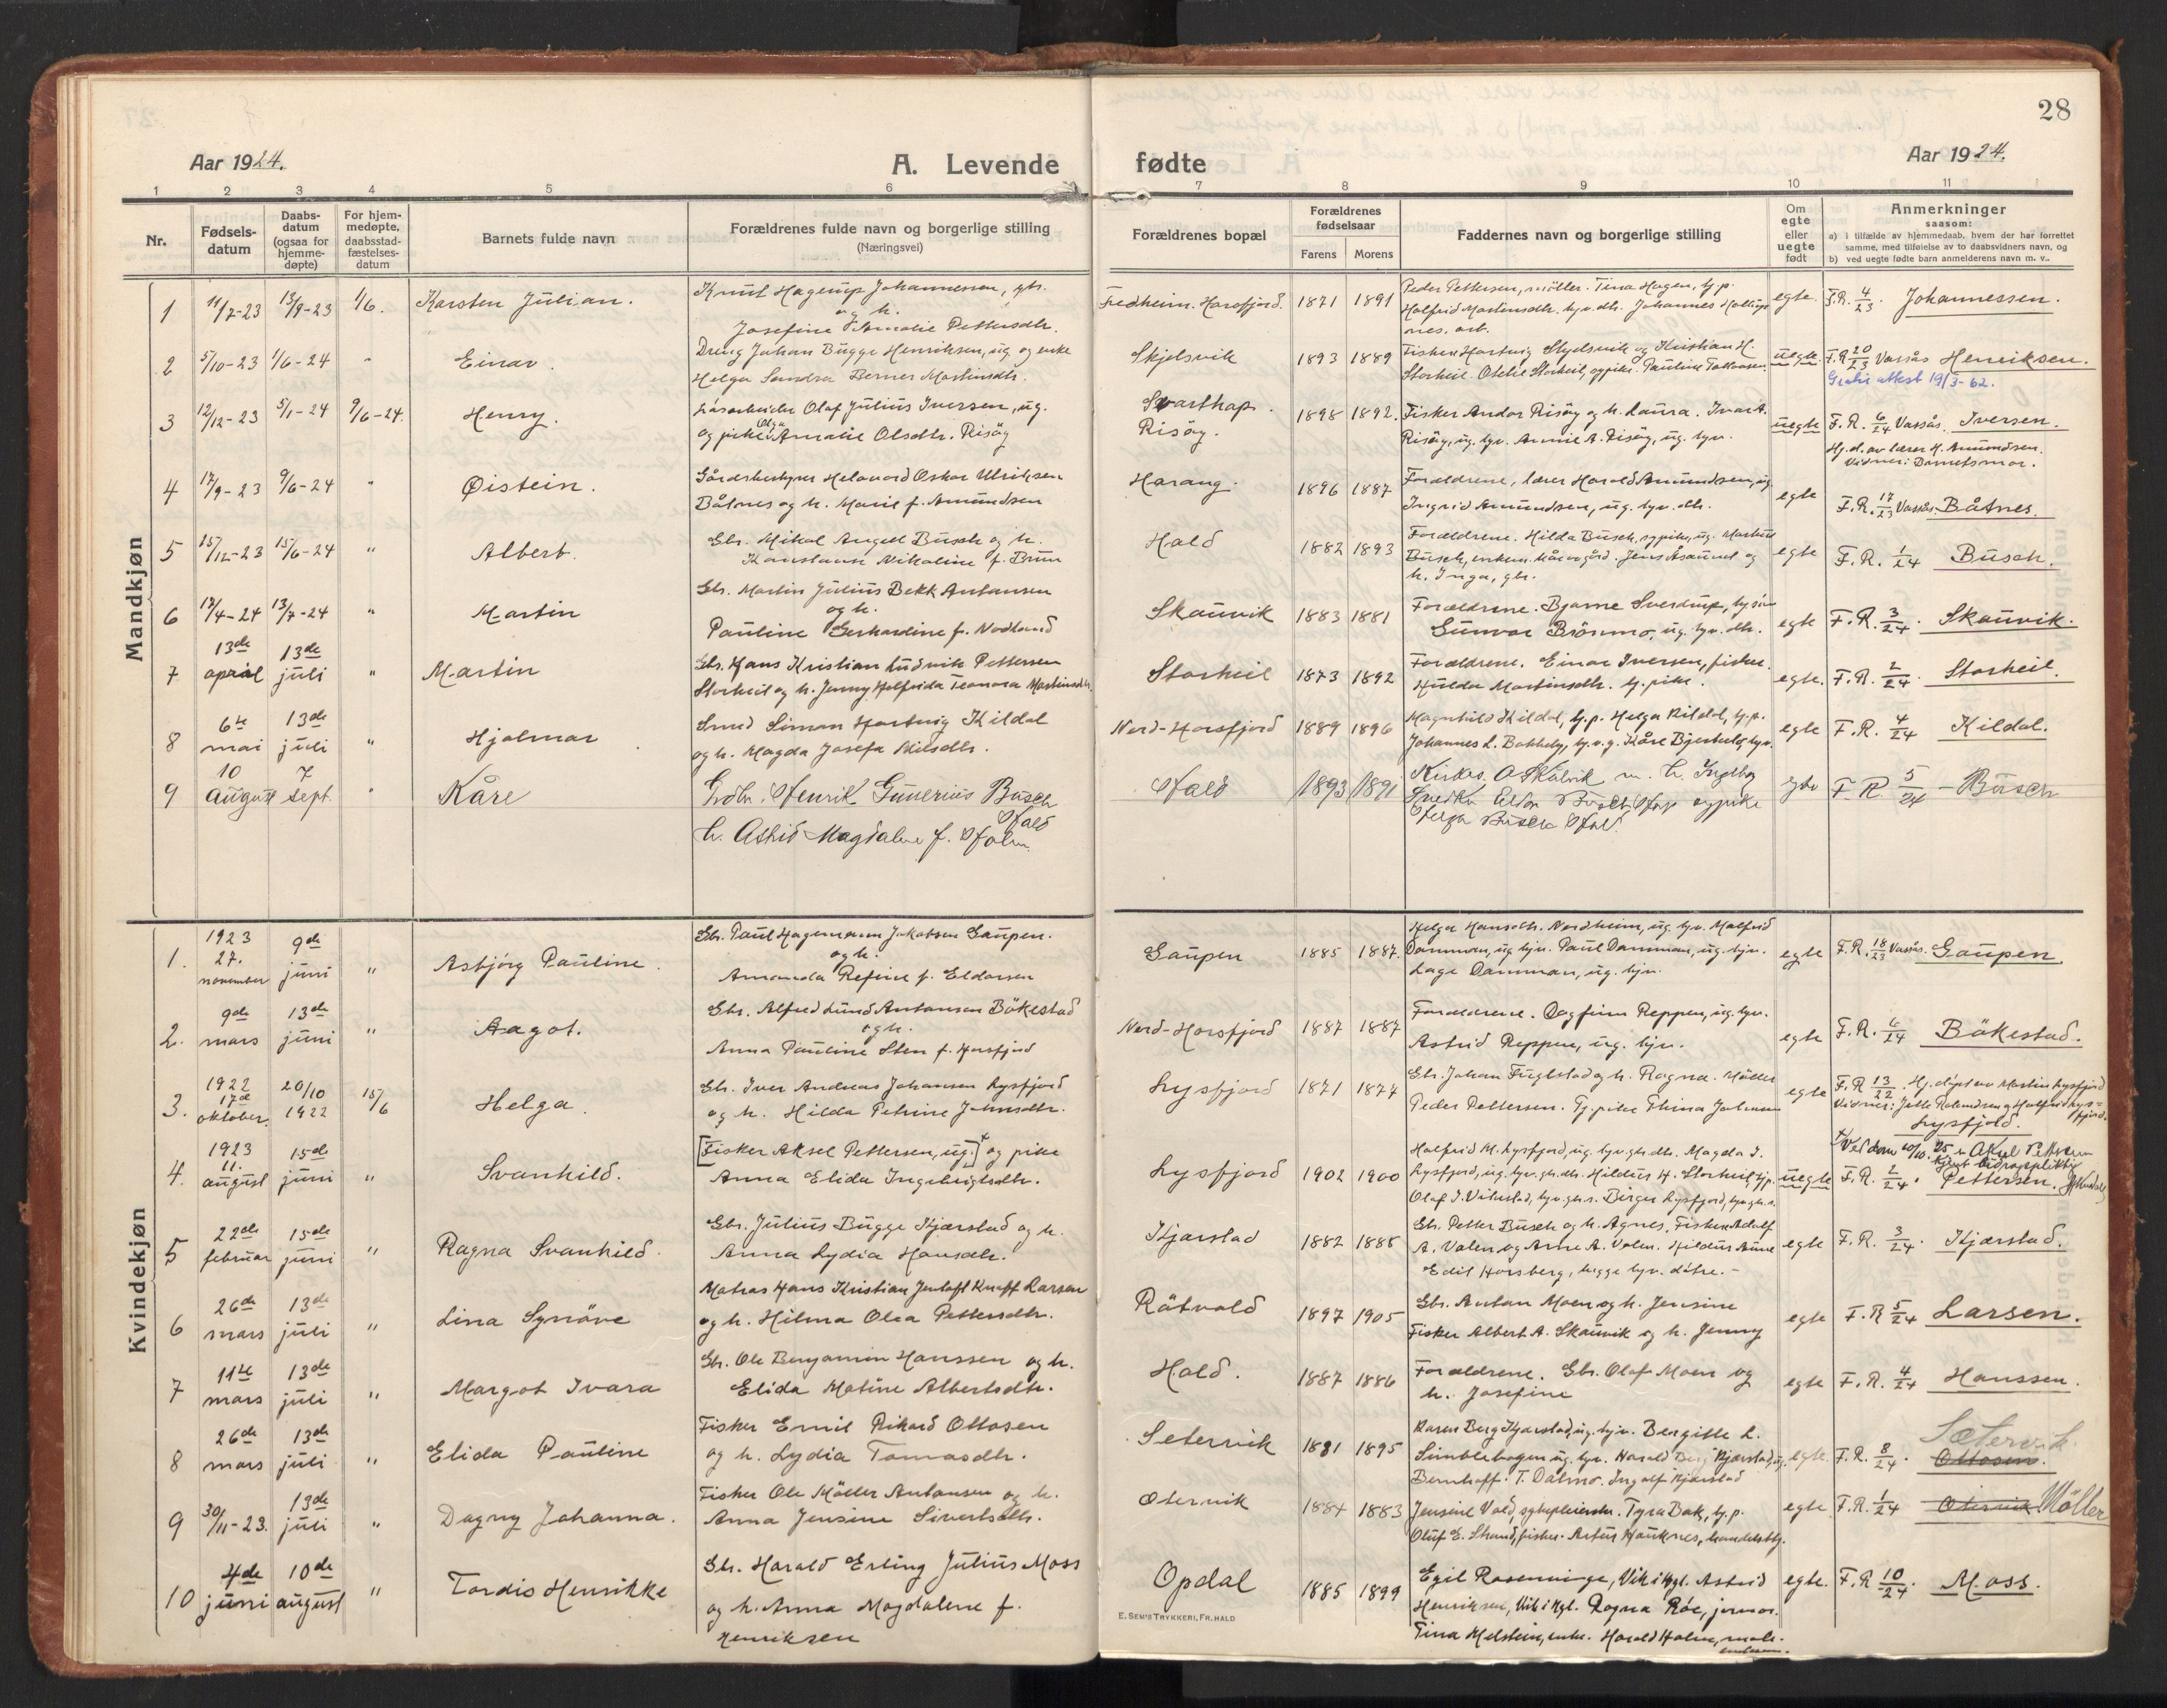 28
Aar 1924.
A. Levende fødte
Aar 1924.
1 2 3 4 5 6 7 8 9 10 11
Nr.
Fødsels-
datum
Daabs-
datum
(ogsaa for
hjemme-
døpte)
For hjem-
medøpte,
daabsstad-
fæstelses-
datum
Barnets fulde navn
Forældrenes fulde navn og borgerlige stilling
(Næringsvei)
Forældrenes bopæl
Forældrenes
fødselsaar
Farens Morens
Faddernes navn og borgerlige stilling
Om
egte
eller
uegte
født
Anmerkninger
saasom:
a) i tilfælde av hjemmedaab, hvem der har forrettet
samme, med tilføielse av to daabsvidners navn, og
b) ved uegte fødte barn anmelderens navn m. v..
Mandkjøn
1 11/7-23 13/9-23 1/6. Karsten Julian.
Knut Hagerup Johannessen, gbr.
og h.
Josefine Amalie Pettersdtr.
Fredheim. Horsfjord. 1871 1891
Peder Pettersen, møller. Tina Hagen, tj.p.
Halfrid Martensdtr. hjv. dtr. Johannes
egte. F.R. 4/23. Johannessen.
2 5/10-23 1/6-24 " Einar.
Dreng Johan Bugge Henriksen, ug. og enke
Helga Sandra Berner Martinsdtr.
Skjelsvik 1893 1889
Fisker Hartvig Skjelsvik og Kristian H.
Storheil. Otelie Storheil, og pike. Pauline
uegte F.R. 20/23 Vassås Henriksen.
Gratis attest 19/3-62.
3 12/12-23 5/1-24 9/6-24. Henry.
Løsarbeider Olaf Julius Iversen, ug.
og pike Olga Amalie Olsdtr. Risøy
Svarthop.
Risøy.
1898 1892.
Fisker Andor Risøy og h. Laura. Ivar A.
Risøy, ug. hjv. Annie A. Risøy, ug. hjv.
uegte F.R. 6/24 Vassås. Iversen.
Hj.d. av lærer H. Amundsen.
Vidner: Barnets mor.
4 17/9-23 9/6-24 " Øistein.
Gårdsbestyrer Helavard Oskar Ulriksen
Båtnes og h. Marie f. Amundsen
Harang. 1896 1887
Forældrene, lærer Harald Amundsen, ug.
Ingrid Amundsen, ug. hjv. dtr.
egte F.R. 17/23 Vassås. Båtnes.
5 15/12-23 15/6-24 " Albert.
Gbr. Mikal Angell Busch og h.
Konstanse Nikoline f. Brun
Hald 1882 1893
Forældrene. Hilda Busch, sypike, ug. Martin
Busch, enkem. kårvogård. Jens Åsamul og
h. Inga, gbr.
egte F.R. 1/24 Busch.
6 17/4-24 13/7-24 " Martin
Gbr. Martin Julius Bekk Antonsen
og h.
Pauline Gerhardine f. Nodland
Skauvik 1883 1881
Forældrene. Bjarne Sverdrup,
Gunvor Brønmo, ug. hjv. dtr.
egte F.R. 3/24. Skauvik.
7 13de april 13de juli " Martin
Gbr. Hans Kristian Ludvik Pettersen
Storheil og h. Jenny Halfrida Leonora Martinsdtr.
Storheil 1873 1892
Forældrene. Einar Iversen, fisker.
Hulda Martinsdtr. tj.pike.
egte. F.R. 2/24. Storheil.
8 6te mai 13de juli " Hjalmar
Smed Simon Hartvig Kildal
og h. Magda Josefa Nilsdtr.
Nord-Horsfjord 1889 1896
Magnhild Kildal, tj.p. Helga Kildal, tj.p.
Johannes L. Bakkeby, tj.v.g. Kåre
egte F.R. 4/24 Kildal.
9 10 august 7 sept. " Kåre
Grdbr. Henrik Gunerius Busch
Hald
h. Astrid Magdalene f. Holm
Hald 1893 1891
Kirkes. O Skålvik m. h. Ingebor
Snedker Eldor Busch Hop sypike
Helga Busch Hald.
egte F.R. 5/24 - Busch
Kvindekjøn
1. 1923 27. november 9de juni " Asbjørg Pauline.
Gbr. Paul Hagemann Jakobsen Gaupen.
og h.
Amanda Refine f. Eldorsen
Gaupen 1885 1887.
Helga Hansdtr. Nordheim, ug. hjv. Malfrid
Damman, ug. hjv. Paul Damman, ug. hjv.
Lage Damman, ug. hjv.
egte F.R. 18/23 Vassås. Gaupen.
2. 9de mars 13de juni " Aagot.
Gbr. Alfred Lund Antonsen Bökestad
og h.
Anna Pauline Sten f. Horsfjord
Nord-Horsfjord 1887 1887
Forældrene. Dagfinn Reppen, ug. hjv.
Astrid Reppen, ug. hjv.
egte F.R. 6/24 Bökestad.
3. 1922 17de oktober. 20/10 1922 15/6 Helga.
Gbr. Iver Andreas Johansen Lysfjord
og h. Hilda Petrine Johnsdtr.
Lysfjord 1871 1874
Gbr. Johan Fuglstad og h. Ragna. Møller
Peder Pettersen. Tj.pike Thina Johansen
egte F.R. 13/22. Hj.døpt av Martin Lysfjord
Vidner: Jette Rolandsen og Halfrid Lys=
fjord.
Lysfjord.
4. 1923 11. august 15de juni " Svanhild.
[Fisker Aksel Pettersen, ug.]+ og pike
Anna Elida Ingebrigtsdtr.
Lysfjord 1902 1900
Halfrid M. Lysfjord, ug. hjv. gbr. dtr. Magda I.
Lysfjord, ug. hjv. gbr. dtr. Hildur H. Storheil, tj.p.
Olaf I. Vikestad, hjv. gbr. s. Birger Lysfjord, hjv. gbr. s.
uegte
+ Ved dom 10/10. 25 er Aksel Pettersen
kjent bidragspliktig
F.R. 2/24. Pettersen.
5 22de februar 15de juni " Ragna Svanhild.
Gbr. Julius Bugge Kjærstad og h.
Anna Lydia Hansdtr.
Kjærstad 1882 1885
Gbr. Petter Busch og h. Agnes. Fisker Adolf
A. Valen og Arne A. Valen. Hildur Aune
Edit Horsberg, begge hjv. døtre.-
egte F.R. 3/24. Kjærstad.
6 26de mars 13de juli " Lina Synöve
Matros Hans Kristian Jentoft Knoff Larsen
og h. Hilma Olea Pettersdtr.
Råtvold 1897 1905
Gbr. Antan Moen og h. Jensine
Fisker Albert A. Skauvik og h. Jenny
egte F.R 5/24 Larsen.
7 11te mars 13de juli " Margot Ivara
Gbr. Ole Benjamin Hanssen og h.
Elida Matine Albertsdtr.
Hald. 1887 1886
Forældrene. Gbr. Olaf Moen og
h. Josefine
egte F.R. 4/24 Hanssen.
8 26de mars 13de juli " Elida Pauline
Fisker Emil Rikard Ottosen
og h. Lydia Tomasdtr.
Setervik 1881 1895
Karen Berg Kjærstad, ug. hjv. Bergitte L.
Simblebogen ug. hjv. Harald Berg Kjærstad, ug.
Bernhoff. T. Dalmo. Ingolf Kjærstad
egte. F.R. 8/24. Sætervik
Ottosen.
9 30/11-23. 13de juli " Dagny Johanna.
Fisker Ole Möller Antonsen og h.
Anna Jensine Sivertsdtr.
Otervik 1884 1883
Jensine Vold, sykepleierske. Tyra Bak, tj.p.
Oluf E. Strand, fisker. Artur Hauknes, handelsbtj.
egte F.R. 1/24 Otervik Möller
10 4de juni 10de august " Tordis Henrikke
Gbr. Harald Erling Julius Moss
og h. Anna Magdalene f.
Henriksen
Opdal 1885 1899
Egil Rosenvinge, Vik i Hgl. Astrid
Henriksen, Vik i Hgl. Ragna Röe, jormor.
Tina Helstein, enke. Harald Holm,
egte. F.R 10/24. Moss.
E. SEM'S TRYKKERI, FR.HALD